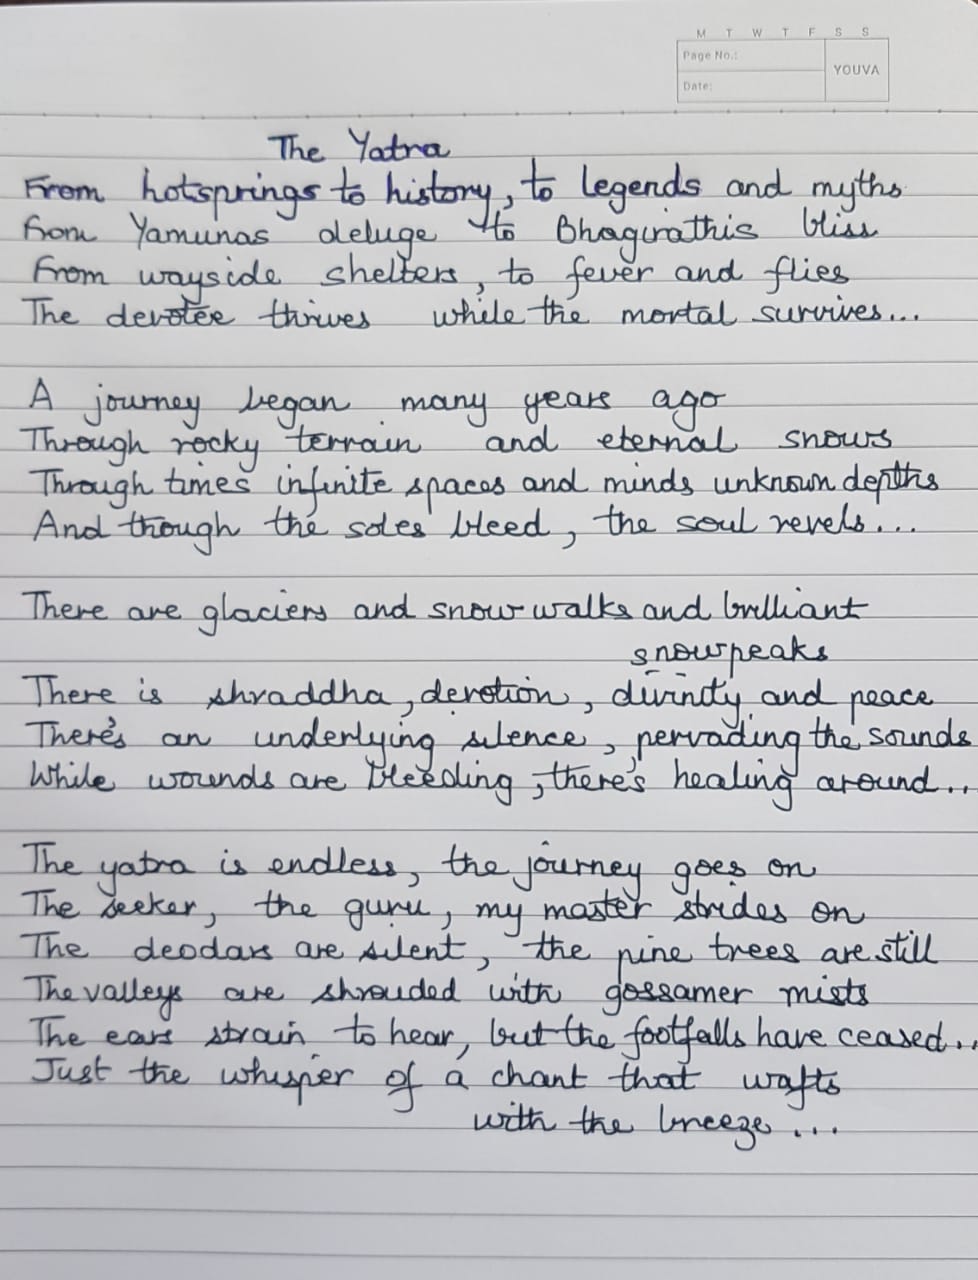 M T W T F S S
Page No.:
YOUVA
Date:
The Yatra
From hotsprings to history, to legends and myths
from Yamunas deluge to Bhagirathis bliss
From wayside shelters, to fever and flies
The devotee thrives while the mortal survives...
A journey began many years ago
Through rocky terrain and eternal snows
Through times infinite spaces and minds unknown depths
And though the soles bleed, the soul revels...
There are glaciers and snow walks and brilliant
snowpeaks
There is shraddha, devotion, divinity and peace
There's an underlying silence, pervading the sounds
While wounds are bleeding, there's healing around..
The yatra is endless, the journey goes on
The seeker, the guru, my master strides on
The deodars are silent, the pine trees are still
The valleys are shrouded with gossamer mists
The ears strain to hear, but the footfalls have ceased...
Just the whisper of a chant that wafts
with the breeze...